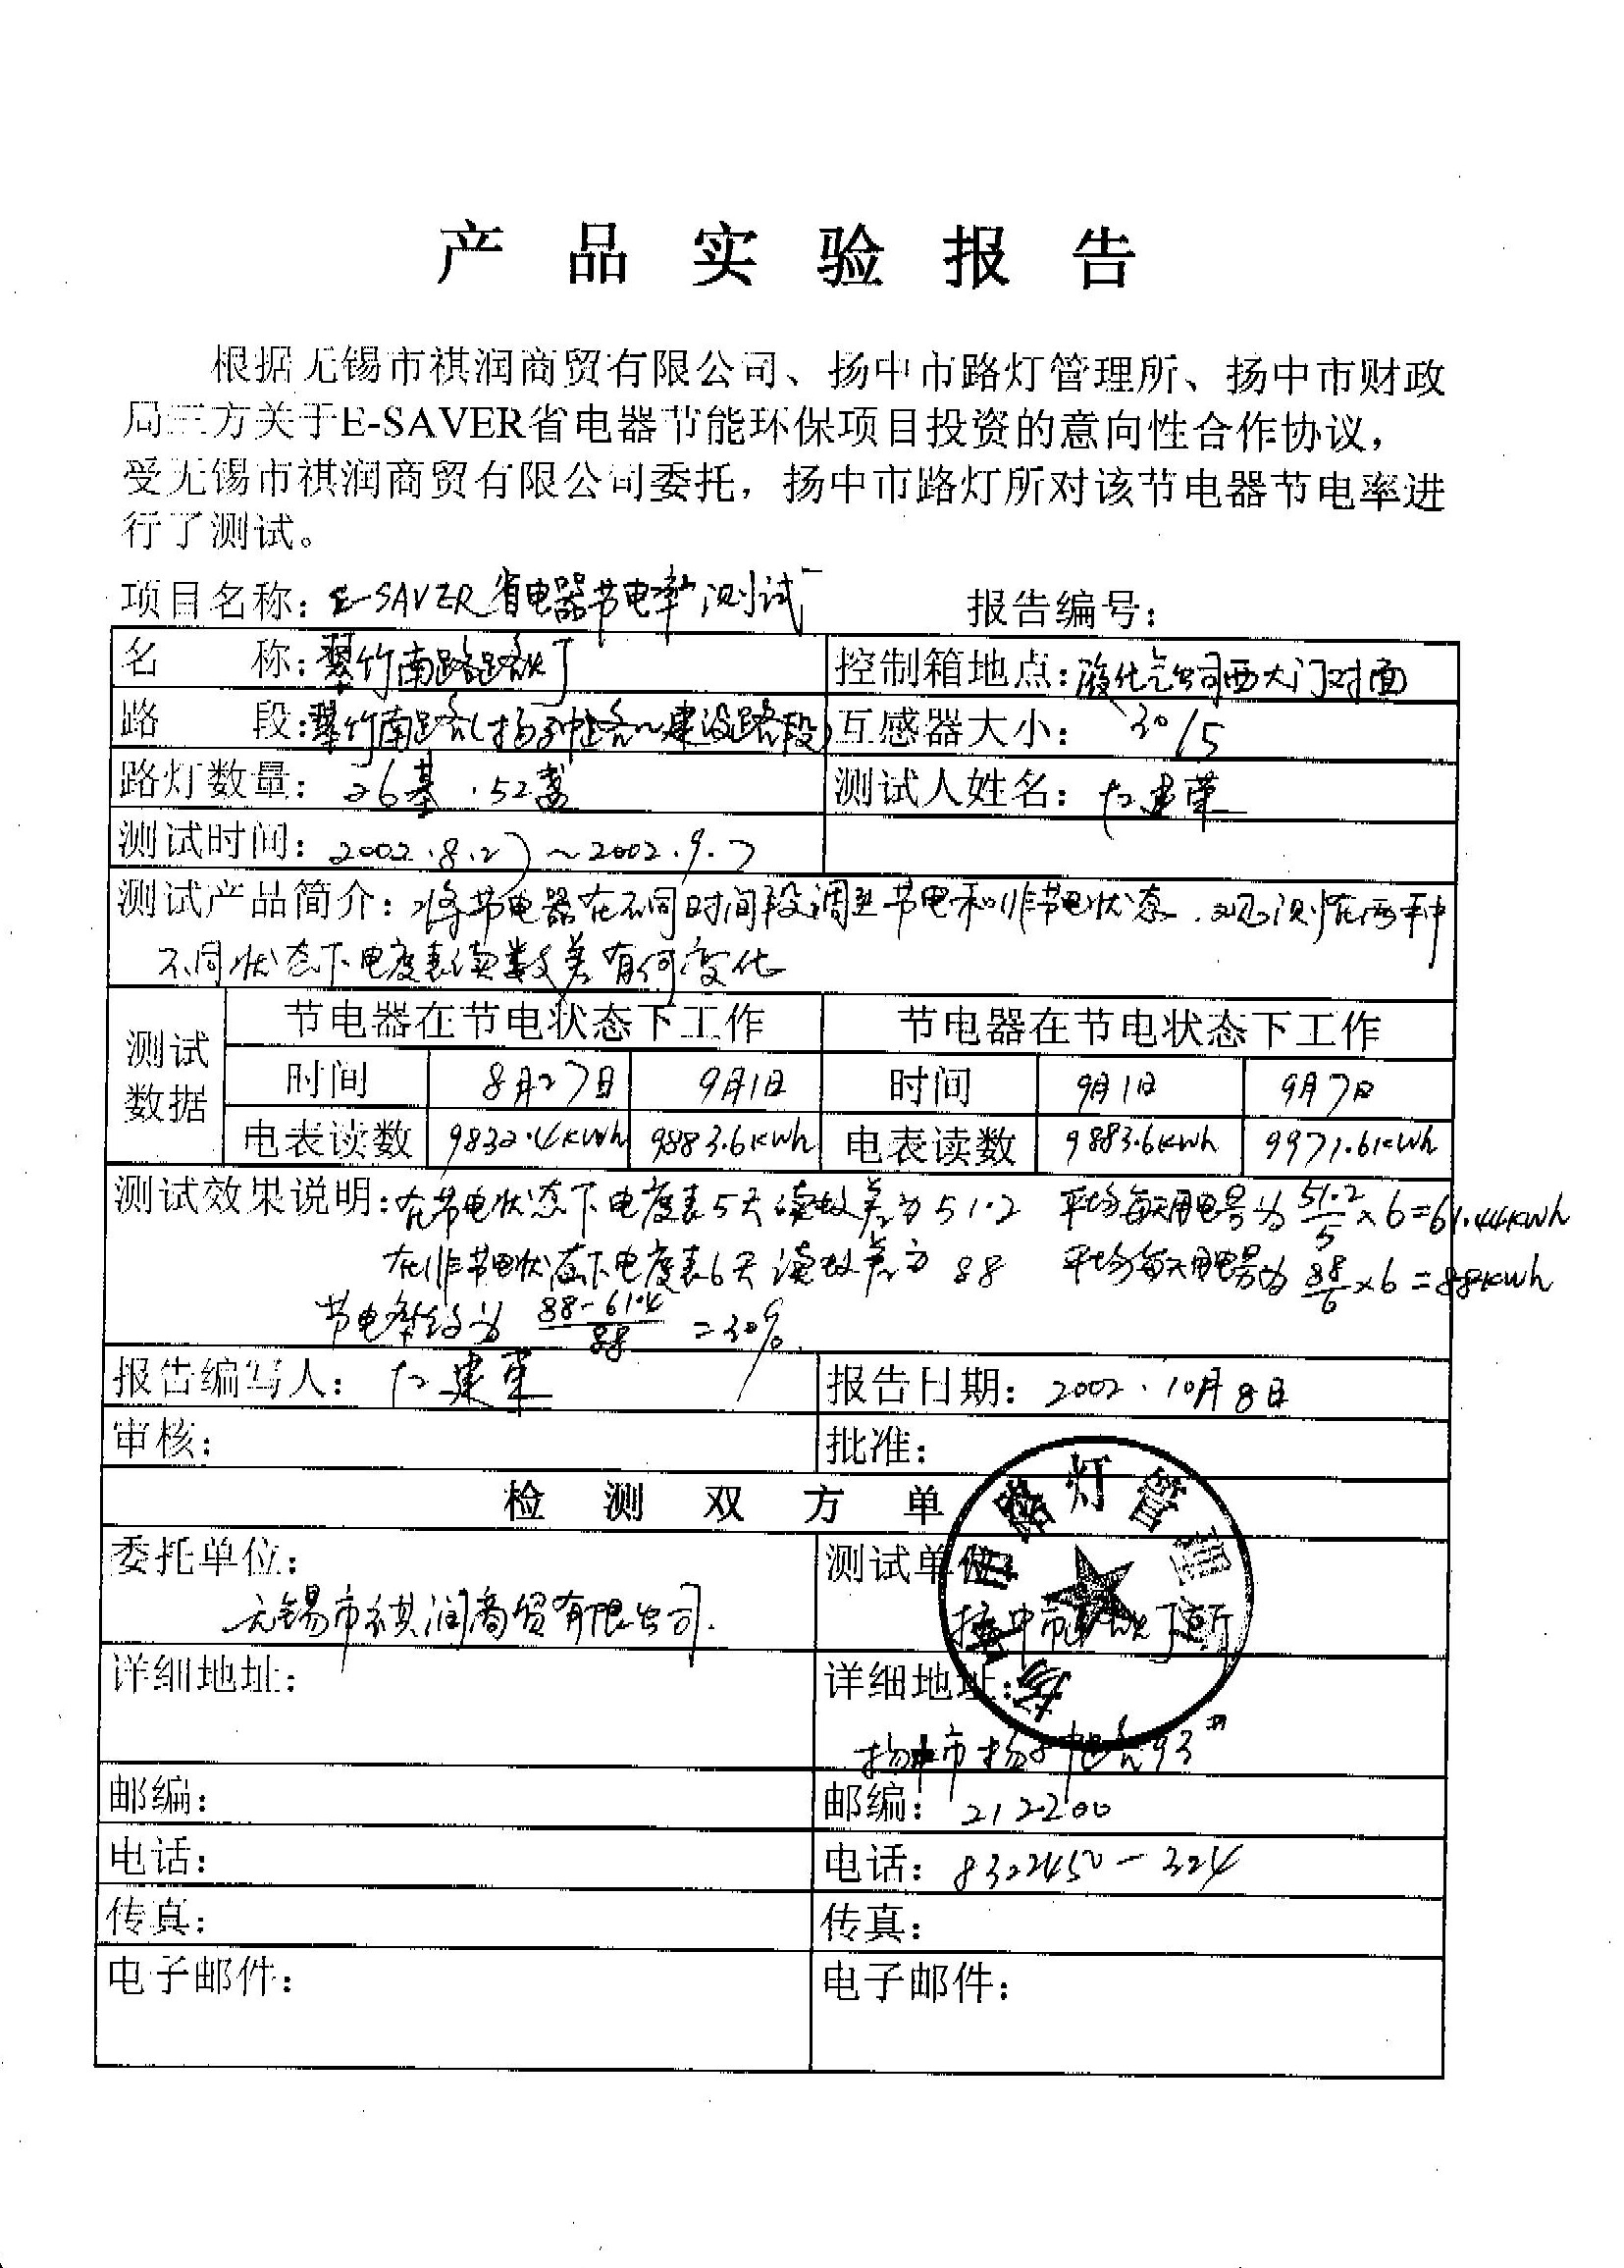 产品实验报告
根据无锡市祺润商贸有限公司、扬中市路灯管理所、扬中市财政
局三方关于E-SAVER省电器节能环保项目投资的意向性合作协议，
受无锡市祺润商贸有限公司委托，扬中市路灯所对该节电器节电率进
行了测试。
项目名称：E-SAVER省电器节电率测试 报告编号：
名 称：翠竹南路路灯 控制箱地点：液化气公司西大门对面
路 段：翠竹南路（扬子中路～建设路段） 互感器大小：30/5
路灯数量：26基．52盏 测试人姓名：建荣
测试时间：2002.8.27～2002.9.7
测试产品简介：将节电器在不同时间段调至节电和非节电状态．观测在两种
不同状态下电度表读数差有何变化
测试数据 节电器在节电状态下工作 节电器在节电状态下工作
时间 8月27日 9月1日 时间 9月1日 9月7日
电表读数 9832.4KWh 9883.6KWh 电表读数 9883.6KWh 9971.6KWh
测试效果说明：在节电状态下电度表5天读数差为51.2 平均每天用电量为51.2/5×6=61.44KWh
在非节电状态下电度表6天读数差为 88 平均每天用电量为88/6×6=88KWh
节电率约为 88-61.4/88 =30%
报告编写人：建荣 报告日期：2002.10月8日
审核： 批准：
检测双方单
委托单位： 测试单位：
无锡市祺润商贸有限公司. 扬中市路灯所
详细地址： 详细地址：
扬中市扬子中路93#
邮编： 邮编：212200
电话： 电话：8322450-324
传真： 传真：
电子邮件： 电子邮件：
扬中市路灯管理所